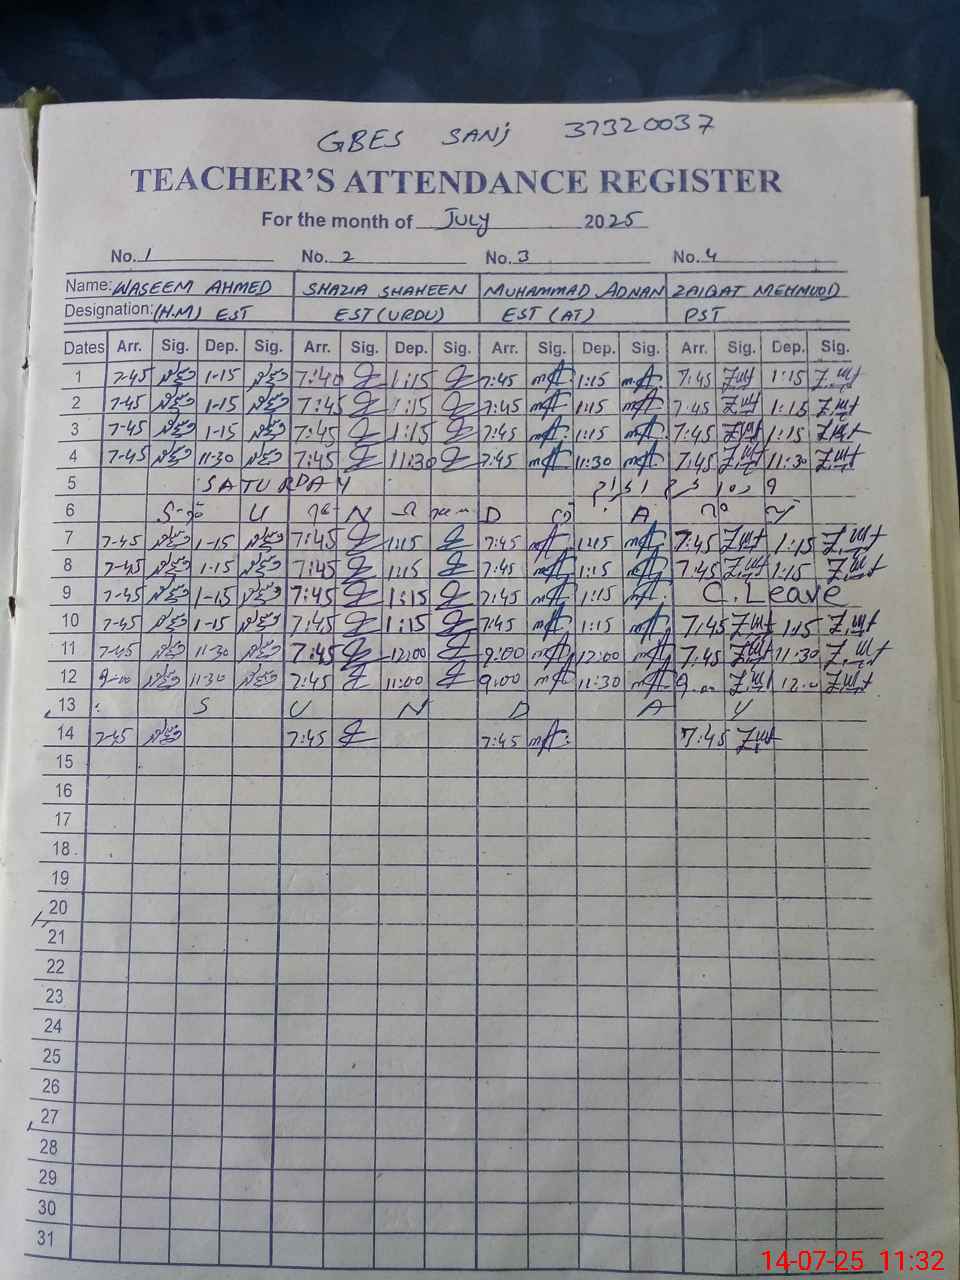 GBES SANJ 37320037
TEACHER'S ATTENDANCE REGISTER
For the month of JULY 2025
No. 1 No. 2 No. 3 No. 4
Name: WASEEM AHMED SHAZIA SHAHEEN MUHAMMAD ADNAN ZAIQAT MEHMOOD
Designation: (H.M) EST EST (URDU) EST (AT) PST
Dates Arr. Sig. Dep. Sig. Arr. Sig. Dep. Sig. Arr. Sig. Dep. Sig. Arr. Sig. Dep. Sig.
1 7-45 1-15 7:40 1:15 7:45 1:15 7:45 1:15
2 7-45 1-15 7:45 1:15 7:45 1:15 7:45 1:15
3 7-45 1-15 7:45 1:15 7:45 1:15 7:45 1:15
4 7-45 11:30 7:45 11:30 7:45 11:30 7:45 11:30
5 SATURDAY
6 S U N D A Y
7 7-45 1-15 7:45 1:15 7:45 1:15 7:45 1:15
8 7-45 1-15 7:45 1:15 7:45 1:15 7:45 1:15
9 7-45 1-15 7:45 1:15 7:45 1:15 C. Leave
10 7-45 1-15 7:45 1:15 7:45 1:15 7:45 1:15
11 7-45 11-30 7:45 12:00 9:00 12:00 7:45 11:30
12 9-00 11:30 7:45 11:00 9:00 11:30 9:00 12:00
13 S U N D A Y
14 7-45 7:45 7:45 7:45
15
16
17
18
19
20
21
22
23
24
25
26
27
28
29
30
31
14-07-25 11:32